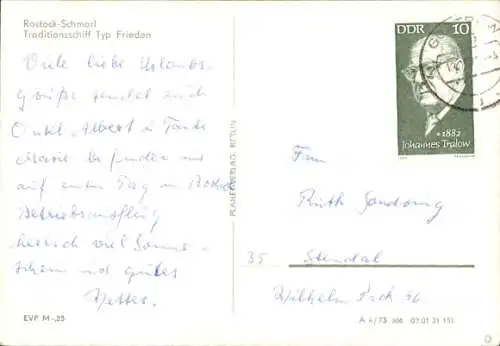 Rostock-Schmarl
Traditionsschiff Typ Frieden
Viele liebe Urlaubs-
grüße sendet euch
Onkel Albert u Tante
befinden uns
auf einen Tag in Rostock
Betriebsausflug
herrscht viel Sonne-
schein und gutes
Wetter.
EVP M -,25
PLANET-VERLAG, BERLIN
DDR 10
*1882
Johannes Tralow
Frau
Ruth
35 Stendal
Wilhelm Pieck 16
A 4/73 306 02 01 31 151